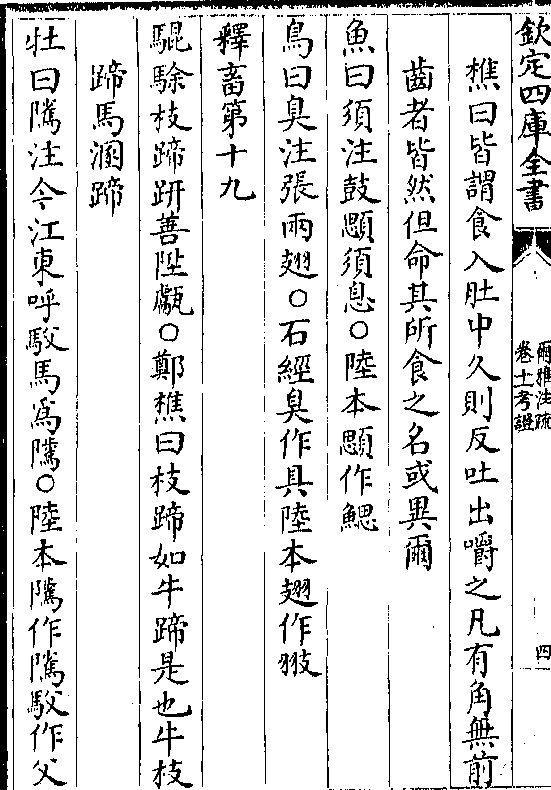 欽定四庫全書
爾雅注疏
卷十一考證
四
樵曰皆謂食入肚中久則反吐出嚼之凡有角無前
齒者皆然但命其所食之名或異爾
魚曰須注鼓顋須息○陸本顋作鰓
鳥曰臭注張兩翅○石經臭作具陸本翅作翄
釋畜第十九
騉駼枝蹄趼善陞甗○鄭樵曰枝蹄如牛蹄是也牛枝
蹄馬溷蹄
牡曰隲注今江東呼駁馬為隲○陸本隲作騭駁作父